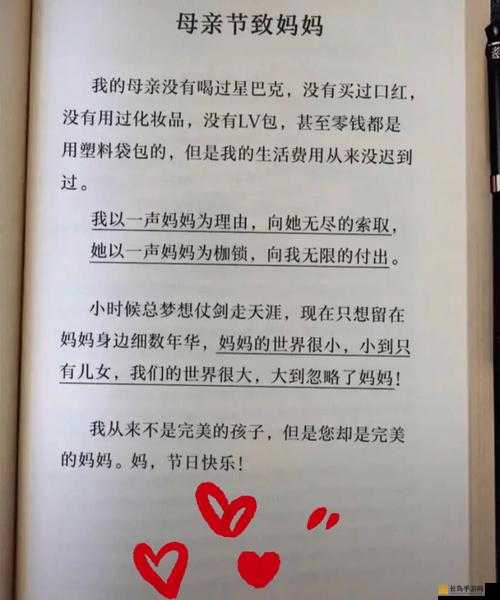 母亲节致妈妈
我的母亲没有喝过星巴克，没有买过口红，
没有用过化妆品，没有LV包，甚至零钱都是
用塑料袋包的，但是我的生活费用从来没迟到
过。
我以一声妈妈为理由，向她无尽的索取，
她以一声妈妈为枷锁，向我无限的付出。
小时候总梦想仗剑走天涯，现在只想留在
妈妈身边细数年华，妈妈的世界很小，小到只
有儿女，我们的世界很大，大到忽略了妈妈！
我从来不是完美的孩子，但是您却是完美
的妈妈。妈，节日快乐！